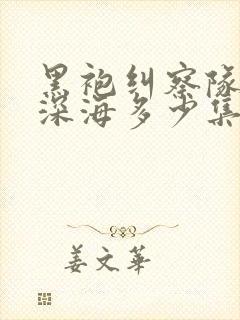 黑袍纠察队
深海多少集
姜文华